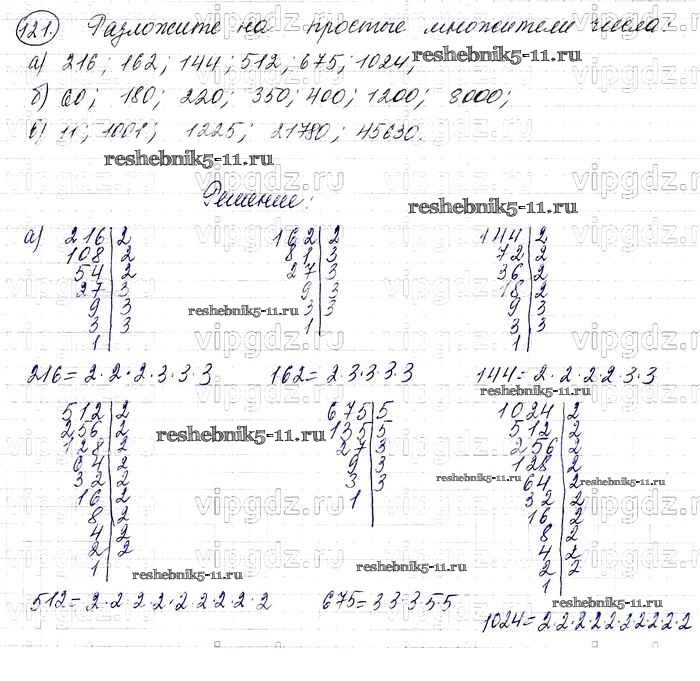 121. Разложите на простые множители числа:
а) 216; 162; 144; 512; 675; 1024;
б) 60; 180; 220; 350; 400; 1200; 8000;
в) 11; 1001; 1225; 21780; 45630.
Решение:
а) 216|2 162|2 144|2
108|2 81|3 72|2
54|2 27|3 36|2
27|3 9|3 18|2
9|3 3|3 9|3
3|3 1 3|3
1 1
216=2·2·2·3·3·3 162=2·3·3·3·3 144=2·2·2·2·3·3
512|2 675|5 1024|2
256|2 135|5 512|2
128|2 27|3 256|2
64|2 9|3 128|2
32|2 3|3 64|2
16|2 1 32|2
8|2 16|2
4|2 8|2
2|2 4|2
1 2|2
1
512=2·2·2·2·2·2·2·2·2 675=3·3·3·5·5
1024=2·2·2·2·2·2·2·2·2·2
reshebnik5-11.ru
vipgdz.ru